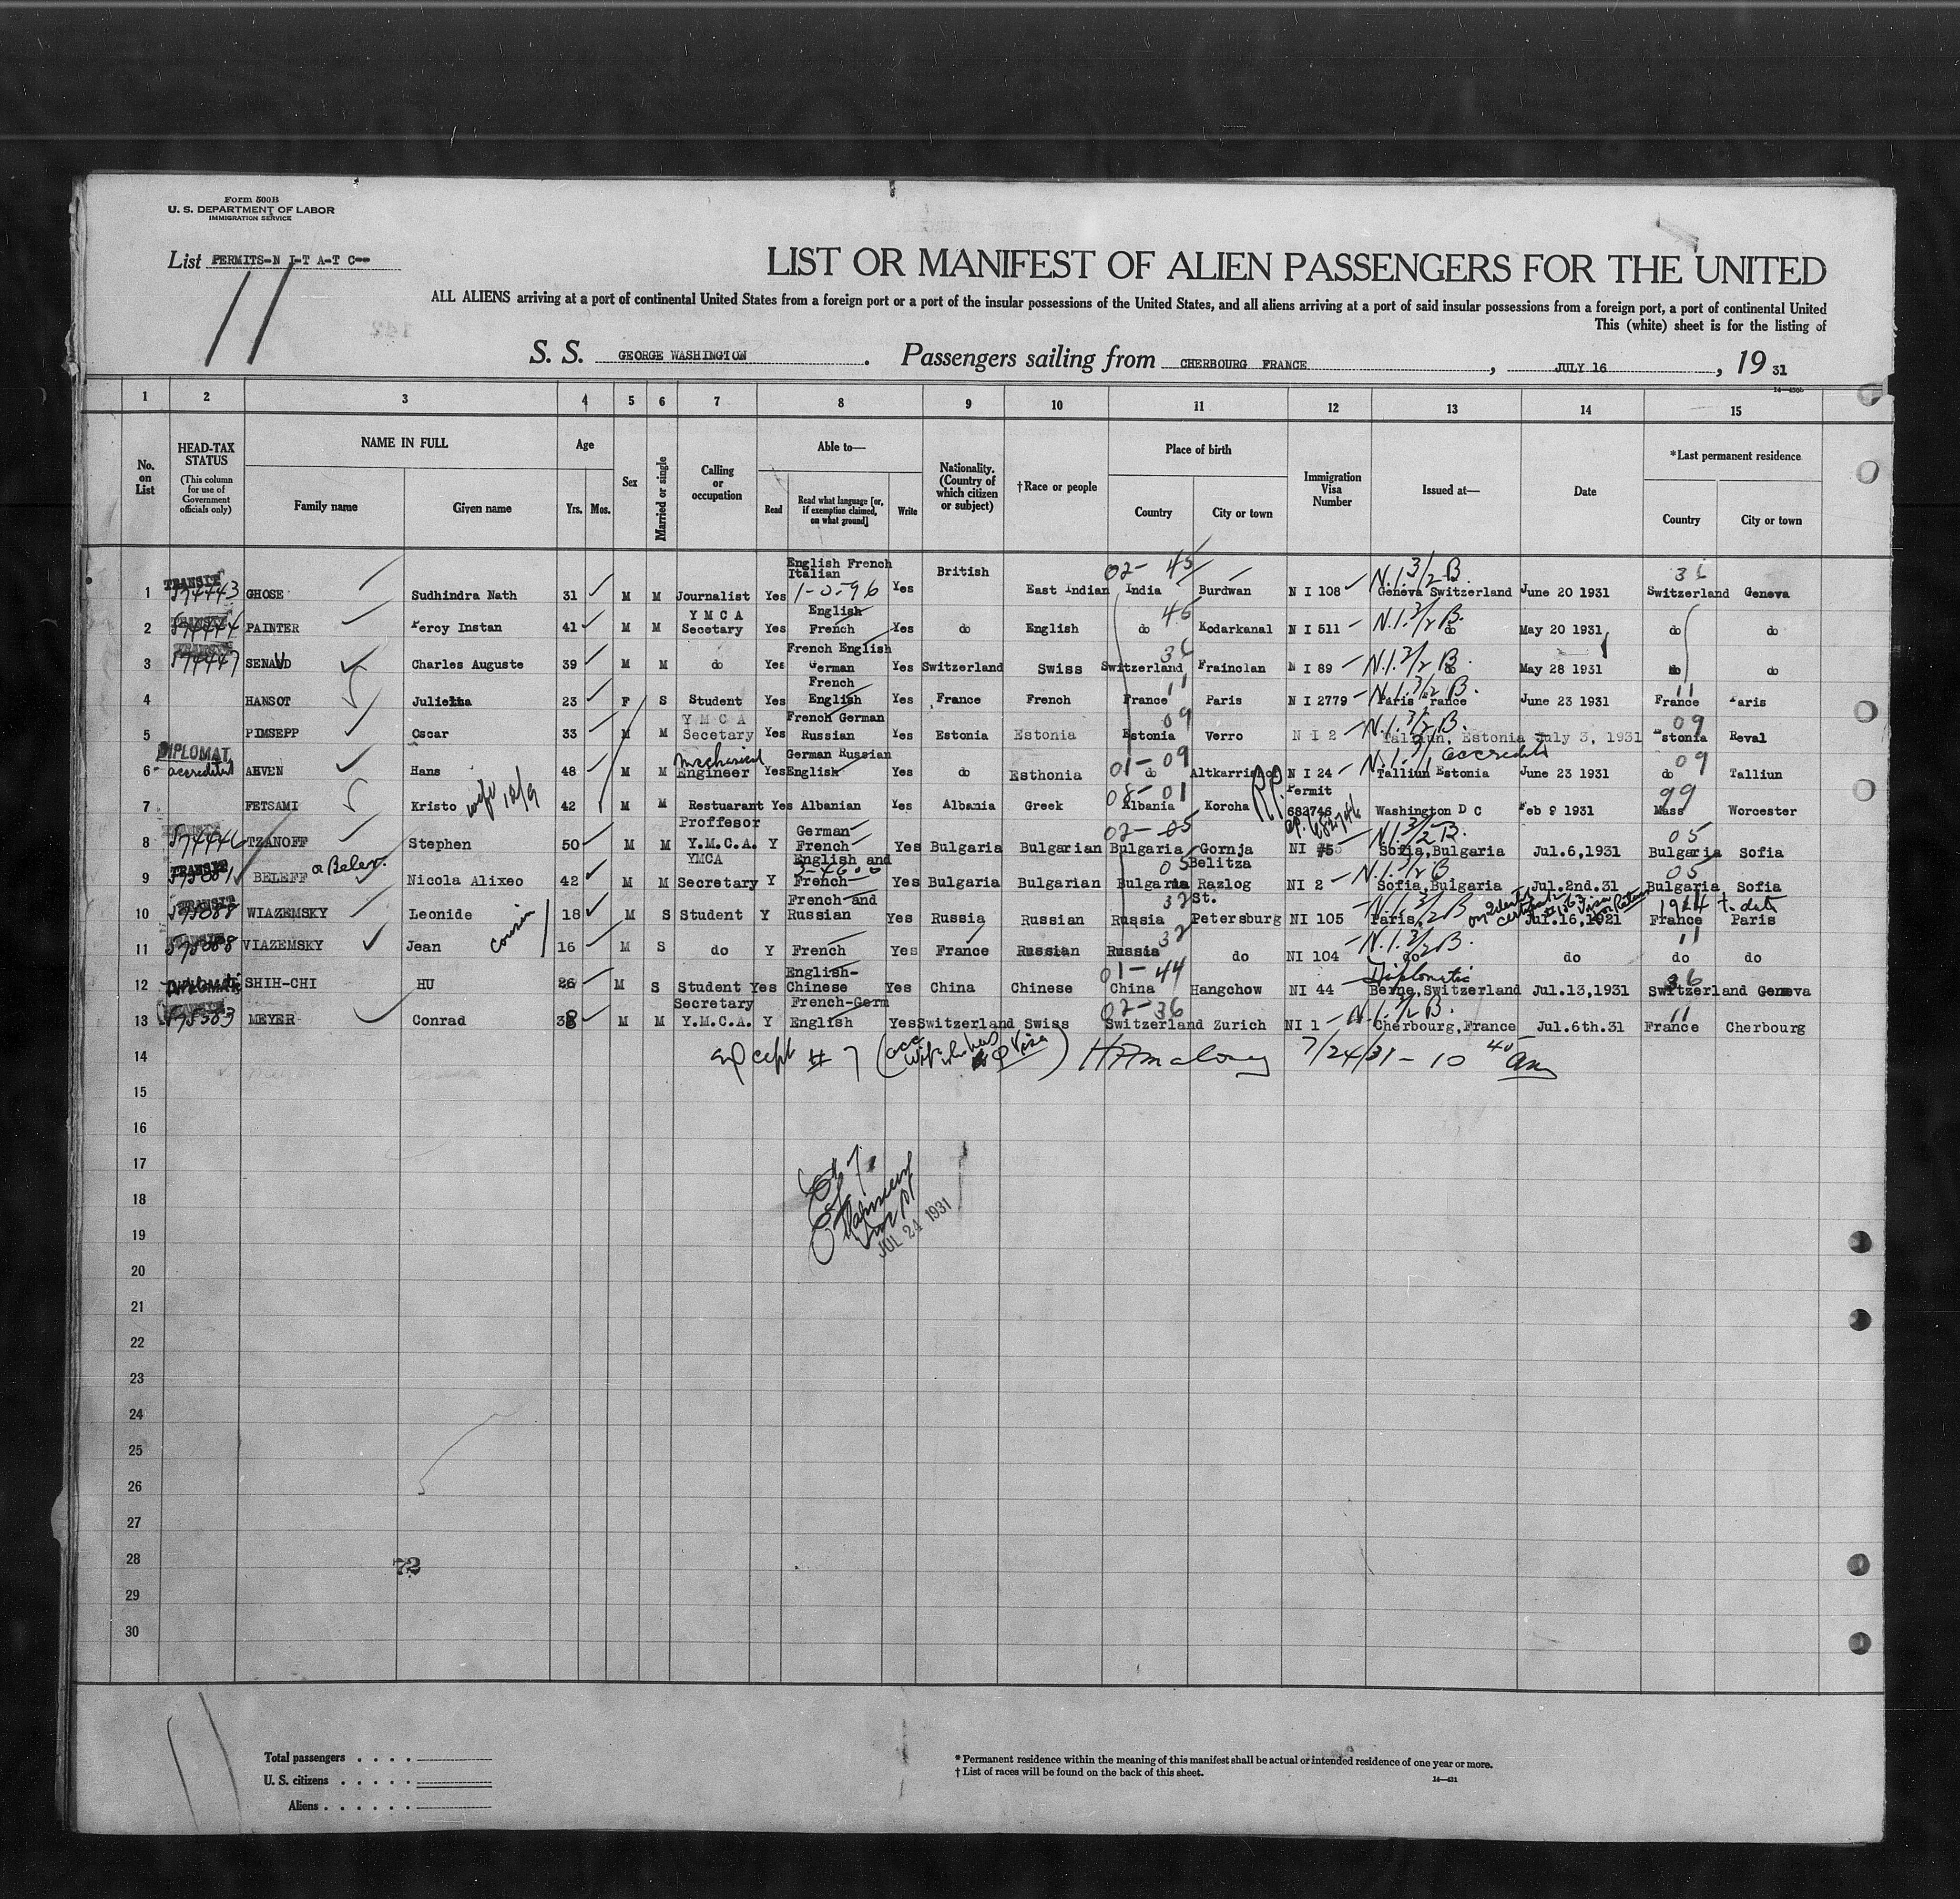 Form 500B
U. S. DEPARTMENT OF LABOR
IMMIGRATION SERVICE
List PERMITS-N I-T A-T C--
11
LIST OR MANIFEST OF ALIEN PASSENGERS FOR THE UNITED
ALL ALIENS arriving at a port of continental United States from a foreign port or a port of the insular possessions of the United States, and all aliens arriving at a port of said insular possessions from a foreign port, a port of continental United
This (white) sheet is for the listing of
S. S. GEORGE WASHINGTON. Passengers sailing from CHERBOURG FRANCE, JULY 16, 19 31
1 2 3 4 5 6 7 8 9 10 11 12 13 14 15
No. on List HEAD-TAX STATUS (This column for use of Government officials only) NAME IN FULL Family name Given name Age Yrs. Mos. Sex Married or single Calling or occupation Able to— Read Read what language [or, if exemption claimed, on what ground] Write Nationality. (Country of which citizen or subject) †Race or people Place of birth Country City or town Immigration Visa Number Issued at— Date *Last permanent residence Country City or town
1 TRANSIT 574443 GHOSE Sudhindra Nath 31 M M Journalist Yes English French Italian 1-0-96 Yes British East Indian 02-45 India Burdwan N I 108 N.I. 3/2 B. Geneva Switzerland June 20 1931 Switzerland Geneva
2 TRANSIT 574444 PAINTER Percy Instan 41 M M Y M C A Secetary Yes English French Yes do English 46 do Kodarkanal N I 511 N.I. 3/2 B. do May 20 1931 do do
3 TRANSIT 574447 SENAUD Charles Auguste 39 M M do Yes French English German Yes Switzerland Swiss 36 Switzerland Frainclan N I 89 N.I. 3/2 B. do May 28 1931 do do
4 HANSOT 23 F S Student Yes French English Yes France French 11 France Paris N I 2779 N.I. 3/2 B. Paris France June 23 1931 11 France Paris
5 PIMSEPP Oscar 33 M M Y M C A Secetary Yes French German Russian Yes Estonia Estonia 09 Estonia Verro N I 2 N.I. 3/2 B. Talliun, Estonia July 3, 1931 09 Estonia Reval
6 DIPLOMAT accredited AHVEN Hans 48 M M Mechanical Engineer Yes German Russian English Yes do Esthonia 01-09 do N I 24 accredited Talliun Estonia June 23 1931 09 do Talliun
7 FETSAMI Kristo wife 10/9 42 M M Restuarant Yes Albanian Yes Albania Greek 08-01 Albania Korcha Permit 682746 RP. 682746 Washington D C Feb 9 1931 99 Mass Worcester
8 574446 TZANOFF Stephen 50 M M Proffesor Y.M.C.A. Y German French Yes Bulgaria Bulgarian 02-05 Bulgaria Gornja NI N.I. 3/2 B. Sofia,Bulgaria Jul.6,1931 05 Bulgaria Sofia
9 TRANSIT BELEFF Nicola Alixeo 42 M M YMCA Secretary Y English and French 3-4600 Yes Bulgaria Bulgarian 05 Bulgaria Belitza Razlog NI 2 N.I. 3/2 B Sofia,Bulgaria Jul.2nd.31 05 Bulgaria Sofia
10 TRANSIT 575088 WIAZEMSKY Leonide 18 M S Student Y French and Russian Yes Russia Russian 32 Russia St. Petersburg NI 105 N.I. 3/2 B Paris, Jul.16,1921 1924 to date France Paris
11 TRANSIT VIAZEMSKY Jean cousin 16 M S do Y French Yes France Russian 32 Russia do NI 104 N.I. 3/2 B. do do 11 do do
12 DIPLOMAT SHIH-CHI HU 26 M S Student Yes English-Chinese Yes China Chinese 01-44 China Hangchow NI 44 Diplomatic Berne,Switzerland Jul.13,1931 36 Switzerland Geneva
13 575303 MEYER Conrad 38 M M Secretary Y.M.C.A. Y French-Germ English Yes Switzerland Swiss 02-36 Switzerland Zurich NI 1 N.I. 3/2 B. Cherbourg,France Jul.6th.31 11 France Cherbourg
14 except # 7 7/24/31 - 10 40 am
15
16
17
18
JUL 24 1931
19
20
21
22
23
24
25
26
27
28
72
29
30
Total passengers . . . .
U. S. citizens . . . . .
Aliens . . . . . .
* Permanent residence within the meaning of this manifest shall be actual or intended residence of one year or more.
† List of races will be found on the back of this sheet.
14—431